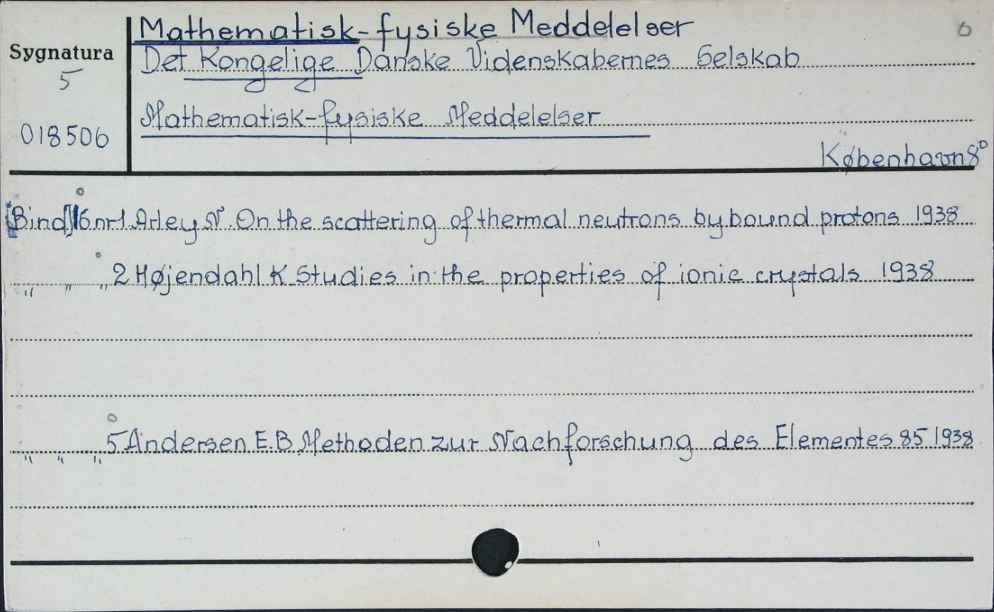 Mathematisk-fysiske Meddelelser 6
Sygnatura
5
Det Kongelige Danske Videnskabernes Selskab
018506
Mathematisk-fysiske Meddelelser
København 8°
[Bind] 16 nr 1. Arley N. On the scattering of thermal neutrons by bound protons 1938
" " " 2 Højendahl K Studies in the properties of ionic crystals 1938
" " " 5 Andersen E.B Methoden zur Nachforschung des Elementes 85 1938